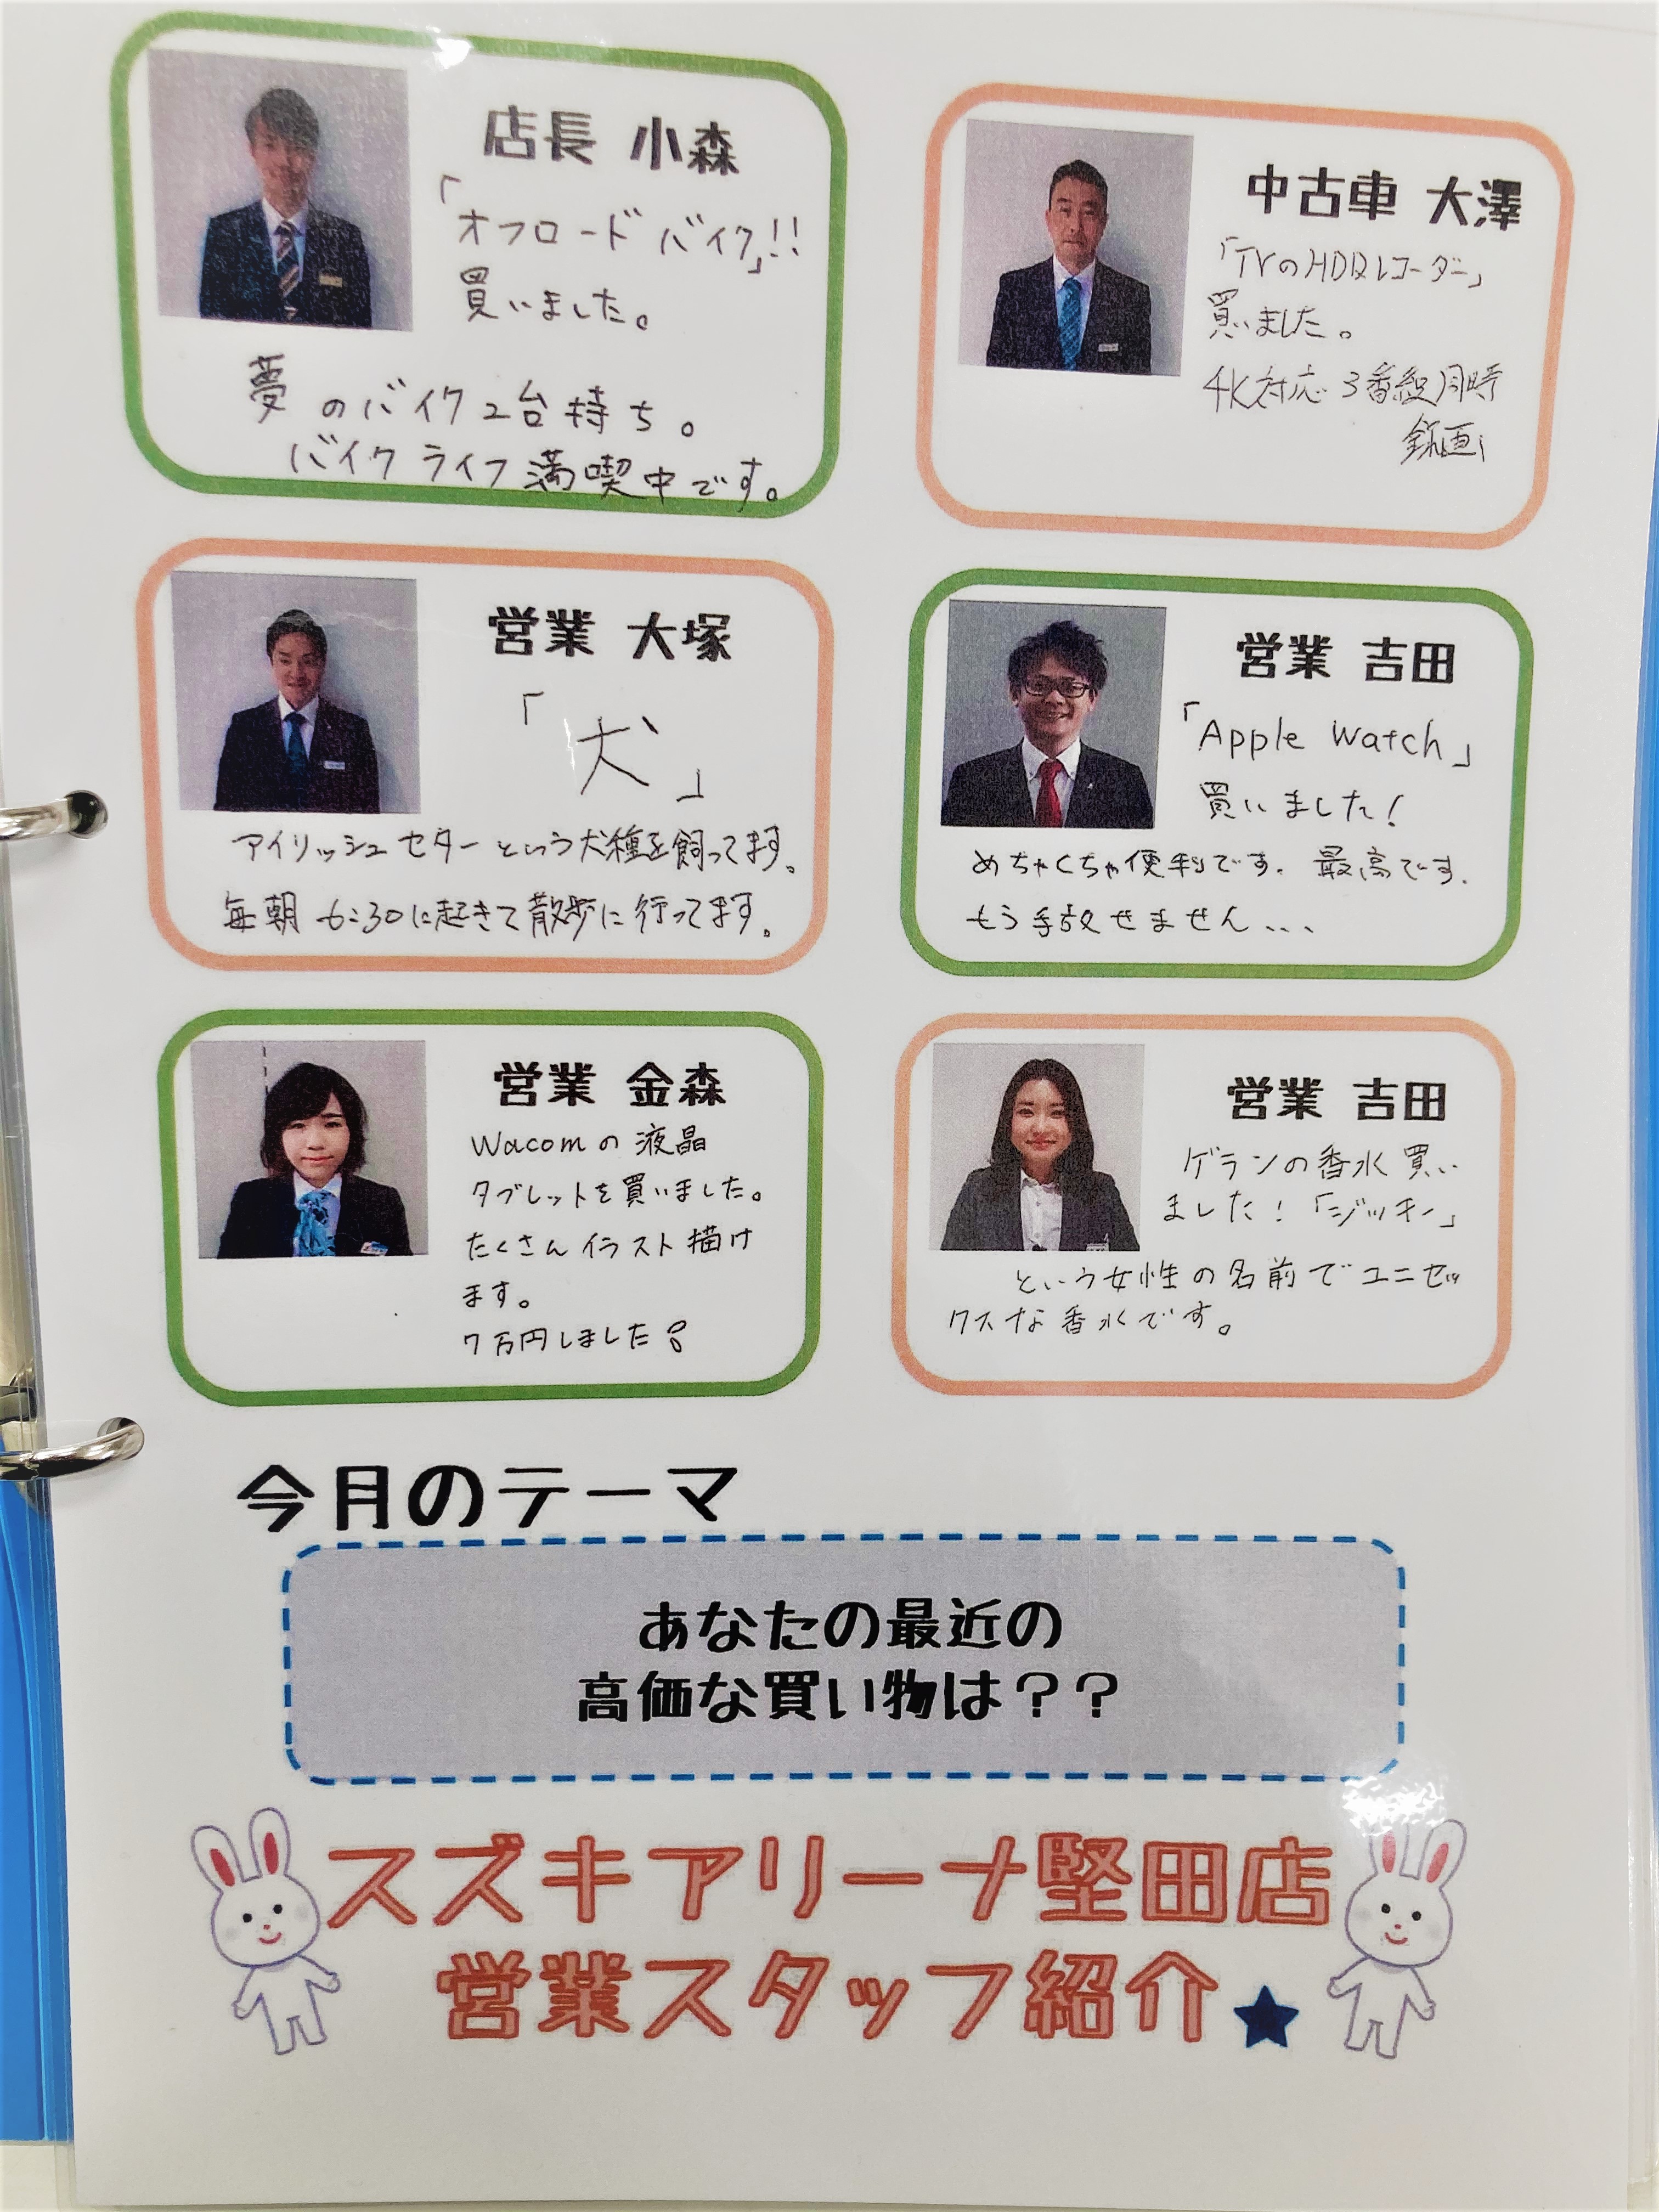 店長 小森
「オフロードバイク」!!
買いました。
夢のバイク2台持ち。
バイクライフ満喫中です。
中古車 大澤
「TVのHDDレコーダー」
買いました。
4K対応 3番組同時
録画
営業 大塚
「犬」
アイリッシュセターという犬種を飼ってます。
毎朝 6:30に起きて散歩に行ってます。
営業 吉田
「Apple Watch」
買いました!
めちゃくちゃ便利です。最高です。
もう手放せません、、、
営業 金森
Wacomの液晶
タブレットを買いました。
たくさんイラスト描け
ます。
7万円しました!!
営業 吉田
ゲランの香水買い
ました!「ジッキー」
という女性の名前でユニセッ
クスな香水です。
今月のテーマ
あなたの最近の
高価な買い物は??
スズキアリーナ堅田店
営業スタッフ紹介★